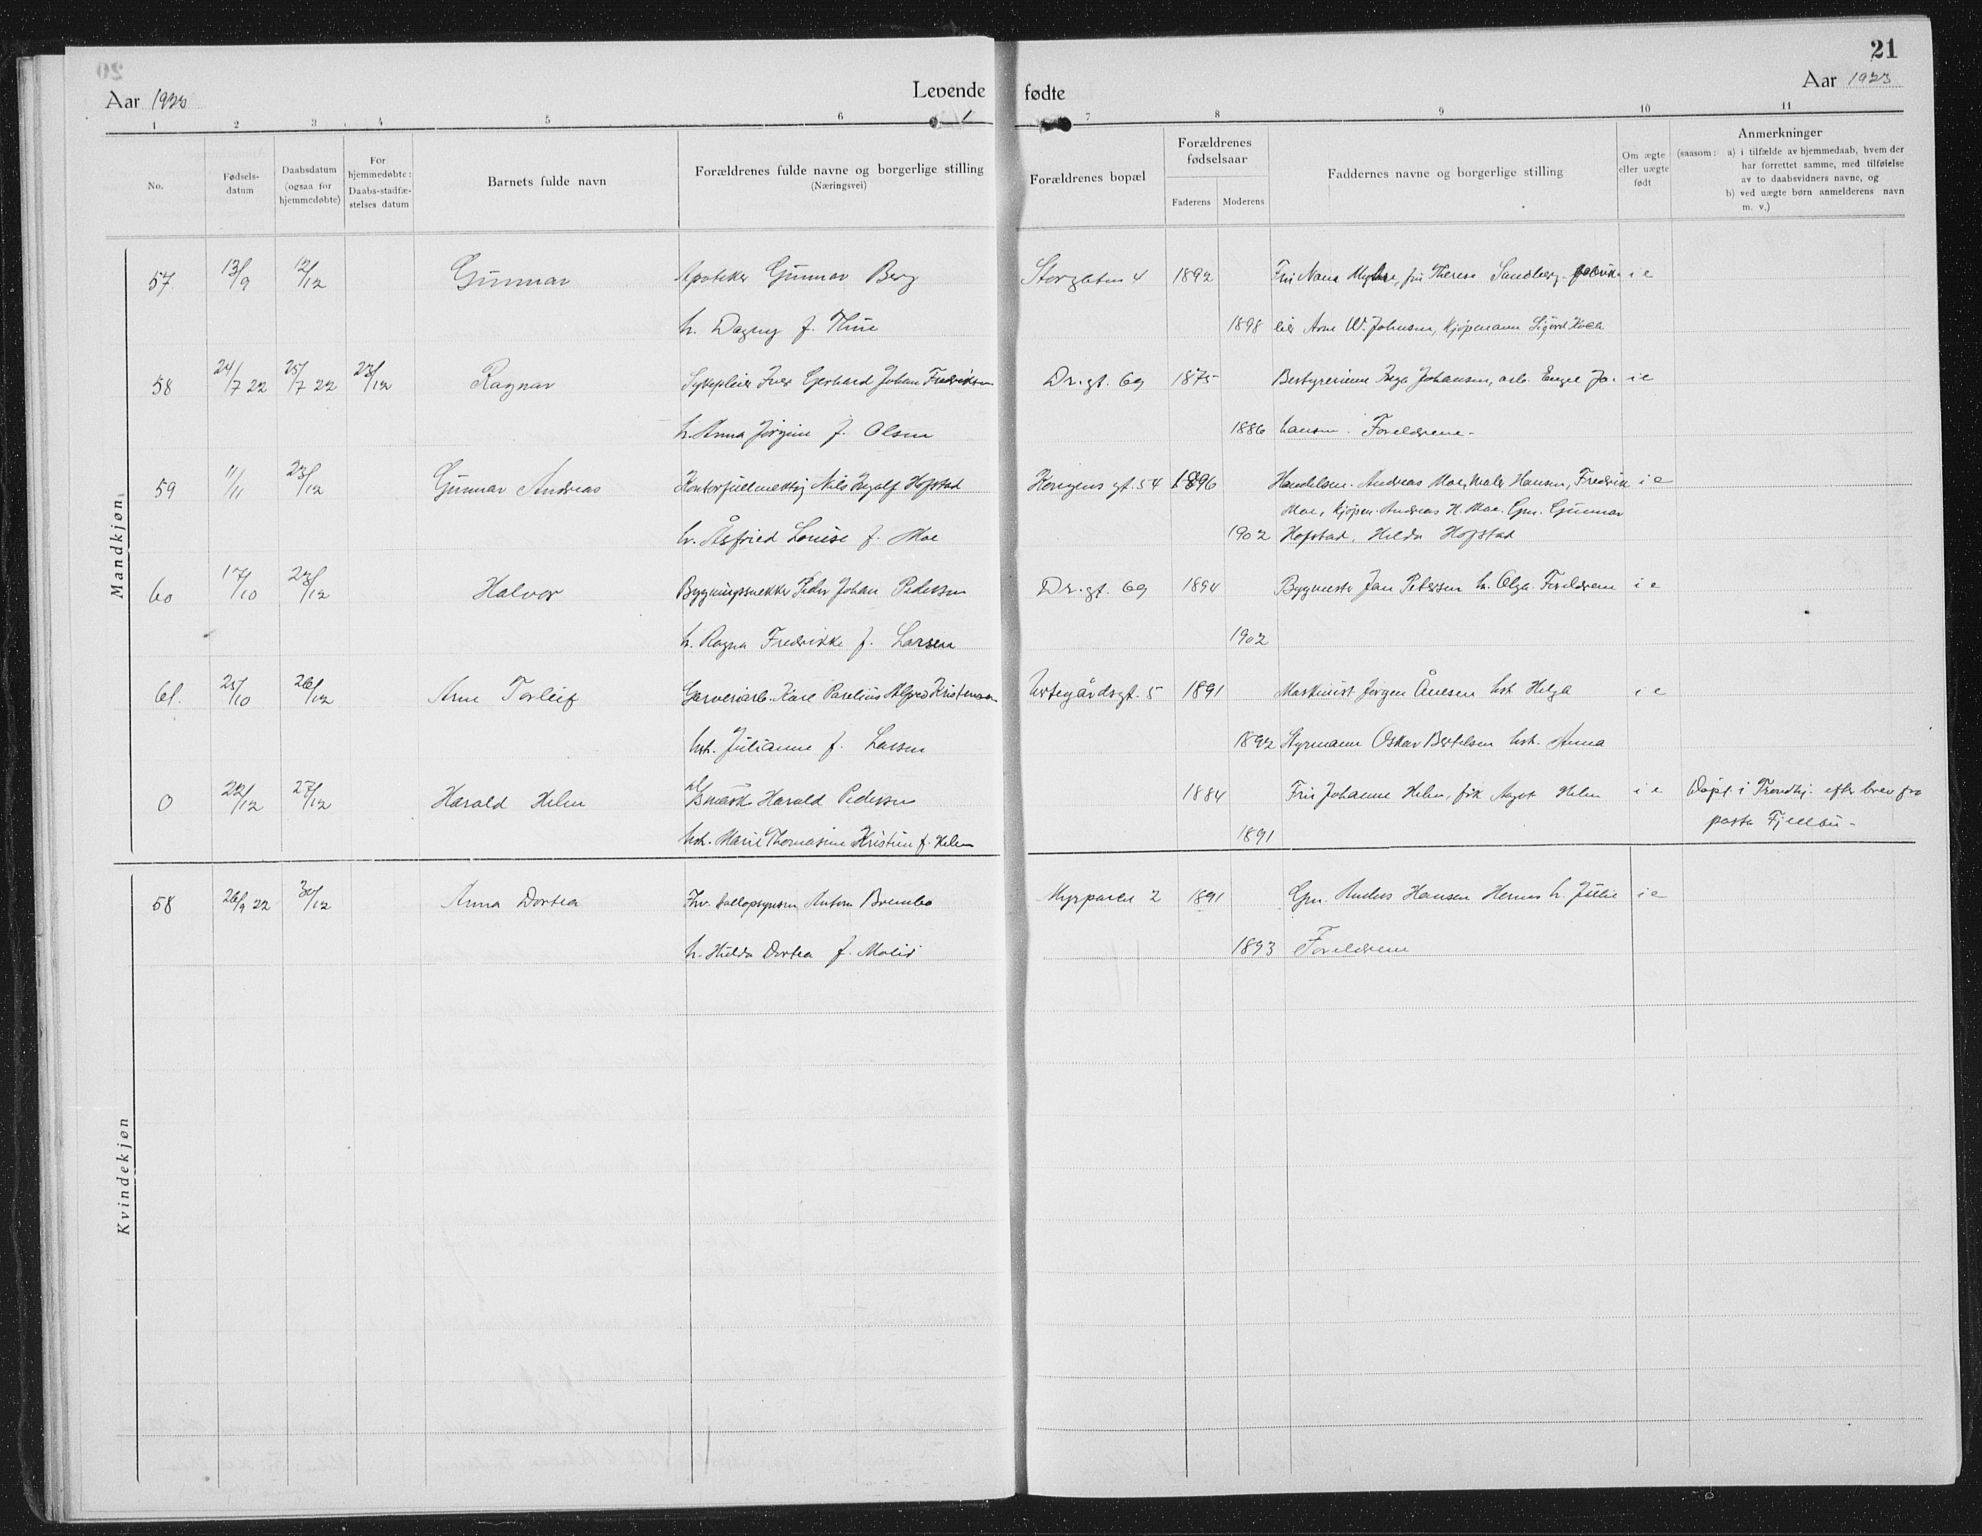 21
Aar 1923 Levende fødte Aar 1923
1 2 3 4 5 6 7 8 9 10 11
No.
Fødsels-
datum
Daabsdatum
(ogsaa for
hjemmedøbte)
For
hjemmedøbte:
Daabs-stadfæ-
stelses datum
Barnets fulde navn
Forældrenes fulde navne og borgerlige stilling
(Næringsvei)
Forældrenes bopæl
Forældrenes
fødselsaar
Faderens Moderens
Faddernes navne og borgerlige stilling
Om ægte
eller uægte
født
Anmerkninger
(saasom: a) i tilfælde av hjemmedaab, hvem der
har forrettet samme, med tilføielse
av to daabsvidners navne, og
b) ved uægte børn anmelderens navn
m. v.)
Mandkjøn
57 13/9 12/12 Gunnar Apoteker Gunnar Berg Storgaten 4 1892 Fru Nana, fru Therese Sandberg i e
h. Dagny f. Thue 1898 Arne W. Johnsen, kjøpmann Sigurd
58 24/7 22 25/7 22 23/12 Ragnar Iver Gerhard Johan Fredriksen Dr.gt. 69 1875 Bestyrerinne Johansen, arb. Jo- i e
h. Anna Jørgine f. Olsen 1886 hansen. Foreldrene.
59 11/11 23/12 Gunnar Andreas Kontorfullmektig Nils Ingolf Hofstad Kongens gt. 54 1896 Andreas Moe, Hansen, Fredrik i e
Moe, kjøpm. Andreas H. Moe. Grn. Gunnar
h. Åsfried Louise f. Moe 1902 Hofstad, Hilda Hofstad
60 17/10 23/12 Halvor Bygningssnekker Peder Johan Pedersen Dr.gt. 69 1894 Bygmester Jan Petersen h. Olga. Foreldrene i e
h. Ragna Fredrikke f. Larsen 1902
61. 25/10 26/12 Arne Torleif Garveriarb. Karl Parelius Alfred Kristensen Urtegårdsgt. 5 1891 Maskinist Jørgen Ånesen hst. Helga i e
hst. Julianne f. Larsen 1892 Styrmann Oskar Bertelsen hst. Anna
0 22/12 27/12 Harald Helen Harald Pedersen 1884 Fru Johanne Helen, frk Aagot Helen i e Døpt i Trondhj. efter brev fra
hst. Marie Thomasine Kristine f. Helen 1891 Fjellbu.
Kvindekjøn
58 26/9 22 30/12 Anna Dortea Anton Brembo Myrparcel 2 1891 Grn. Anders Hansen Hernes h. Julie i e
h. Hilda Dortea f. 1893 Foreldrene